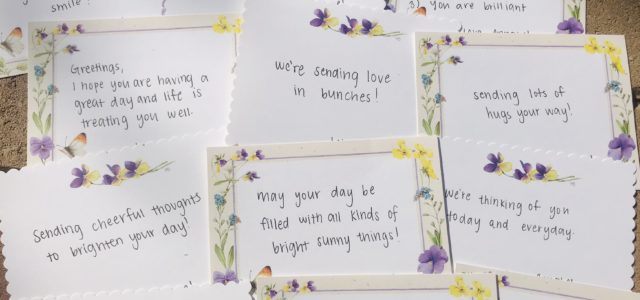 smile!
3) you are brilliant
Greetings,
I hope you are having a
great day and life is
treating you well.
we're sending love
in bunches!
sending lots of
hugs your way!
Sending cheerful thoughts
to brighten your day!
may your day be
filled with all kinds of
bright sunny things!
we're thinking of you
today and everyday.